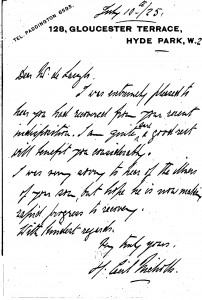 TEL. PADDINGTON 6595.
July 10th/25.
128, GLOUCESTER TERRACE,
HYDE PARK, W.2
Dear Mr de
I was extremely pleased to
hear you had recovered from your recent
indisposition. I am quite sure a good rest
will benefit you considerably.
I was very sorry to hear of the illness
of your son, but hope he is now making
rapid progress to recovery.
With kindest regards.
Very truly yours.